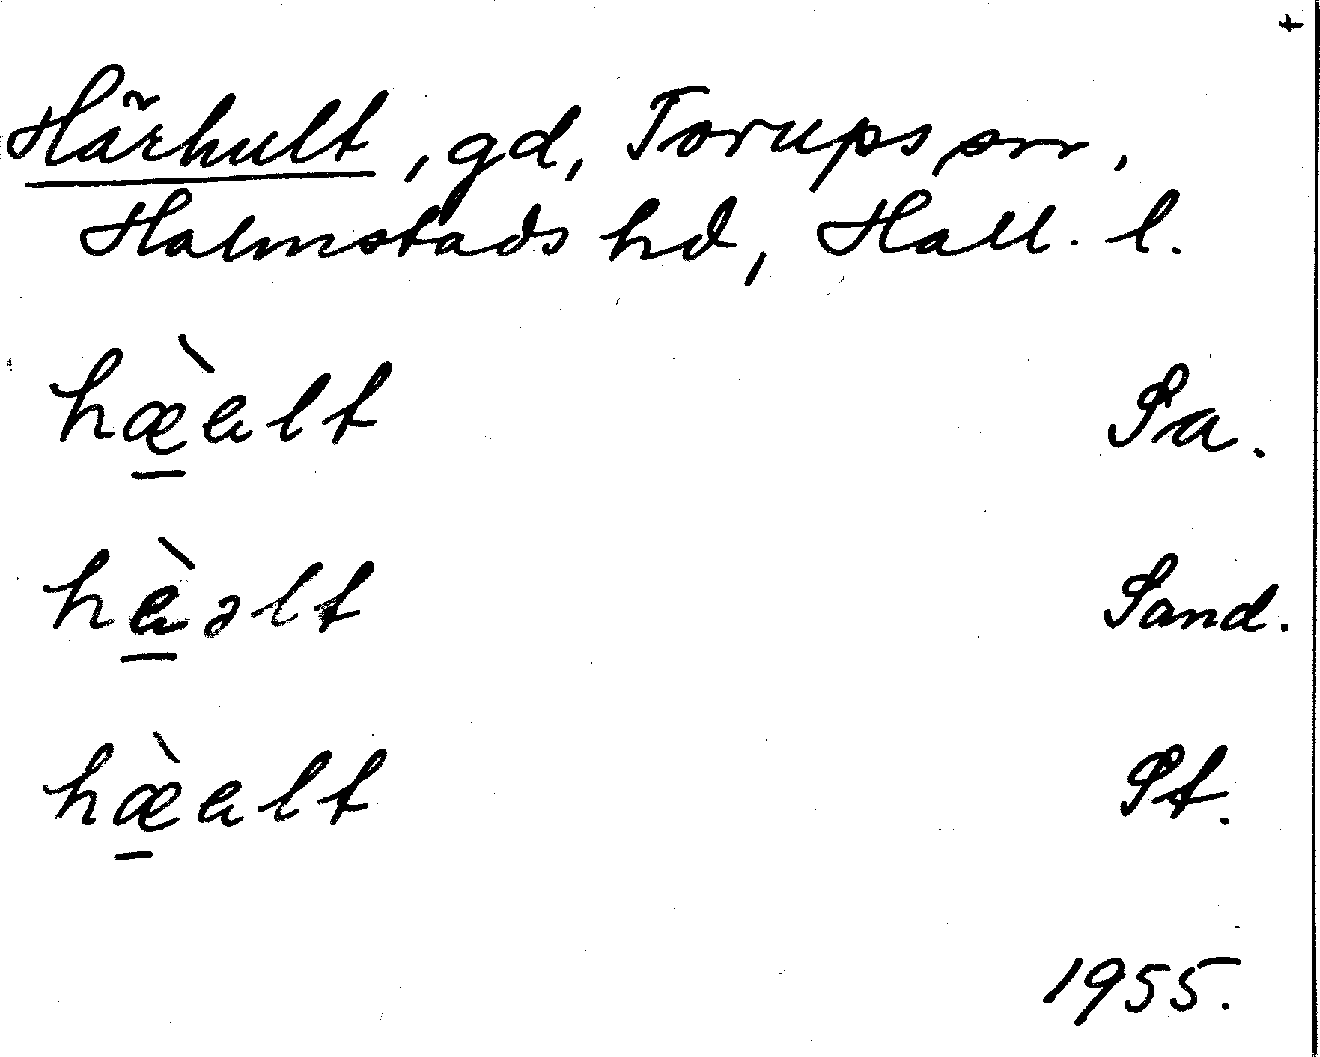 +
Härhult, gd, Torups sn,
Halmstads hd, Hall. l.
hæ̠̀alt Sa.
hà̠əlt Sand.
hæ̠̀alt St.
1955.